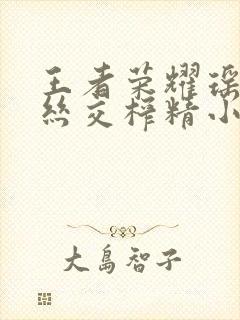 王者荣耀瑶
丝交榨精小
大島智子